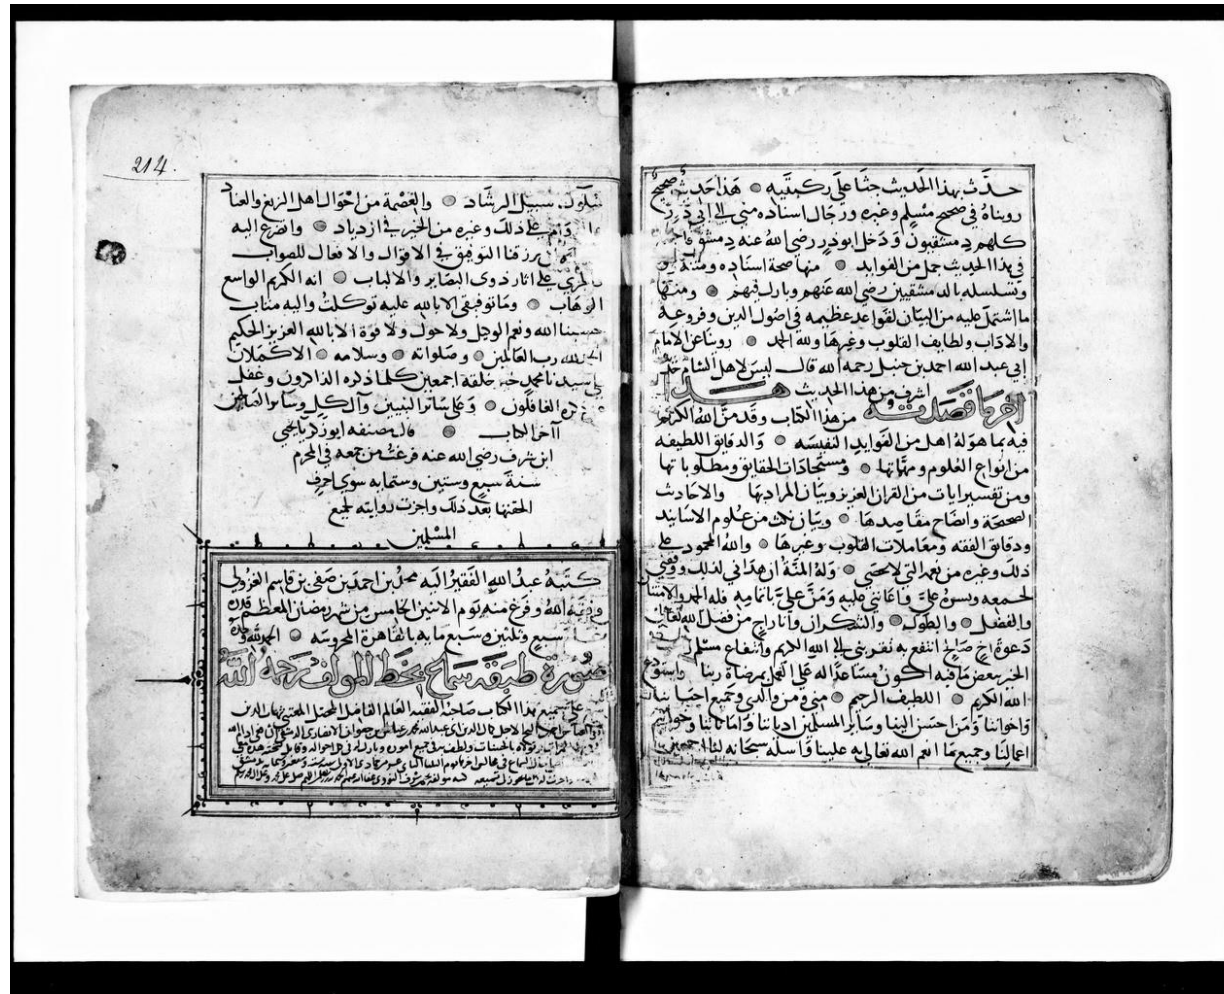 حدث بهذا الحديث جثا على ركبتيه هذا حديث صحيح
رويناه في صحيح مسلم وغيره ورجال اسناده مني الى ابي ذر رضي
كلهم دمشقيون ودخل ابو ذر رضي الله عنه دمشق فاجتمع
في هذا الحديث جمل من الفوايد منها صحة اسناده ومتنه و
وتسلسله بالدمشقيين رضي الله عنهم وبارك فيهم ومنها
ما اشتمل عليه من البيان لقواعد عظيمه في اصول الدين وفروعه
والاداب ولطايف القلوب وغيرها ولله الحمد روينا عن الامام
ابي عبد الله احمد بن حنبل رحمه الله قال ليس لاهل الشام حديث
اشرف من هذا الحديث هذا
اخر ما قصدته من هذا الكتاب وقد من الله الكريم
فيه بما هو له اهل من الفوايد النفيسه والدقايق اللطيفه
من انواع العلوم ومهماتها ومستجادات الحقايق ومطلوباتها
ومن تفسير ايات من القران العزيز وبيان المراد بها والاحاديث
الصحيحة وايضاح مقاصدها وبيان نكت من علوم الاسانيد
ودقايق الفقه ومعاملات القلوب وغيرها والله المحمود على
ذلك وغيره من نعمه التي لا تحصى وله المنة ان هداني لذلك ووفقني
لجمعه ويسره علي واعانني عليه ومن علي باتمامه فله الحمد والامتنان
والفضل والطول والشكران وانا راج من فضل الله تعالى
دعوة اخ صالح انتفع به تقربني الى الله الكريم وانتفاع مسلم
الخير ببعض ما فيه اكون مساعدا له على العمل بمرضاة ربنا واستودع
الله الكريم اللطيف الرحيم مني ومن والدي وجميع احبابنا
واخواننا ومن احسن الينا وساير المسلمين ادياننا واماناتنا وخواتيم
اعمالنا وجميع ما انعم الله تعالى به علينا واسله سبحانه لنا اجمعين
214.
سلوك سبيل الرشاد والعصمة من احوال اهل الزيغ والعناد
على ذلك وغيره من الخير في ازدياد واتضرع اليه
يرزقنا التوفيق في الاقوال والافعال للصواب
والجري على اثار ذوي البصاير والالباب انه الكريم الواسع
الوهاب وما توفيقي الا بالله عليه توكلت واليه متاب
حسبنا الله ونعم الوكيل ولا حول ولا قوة الا بالله العزيز الحكيم
الحمد لله رب العالمين وصلواته وسلامه الاكملان
على سيدنا محمد خير خلقه اجمعين كلما ذكره الذاكرون وغفل
عن ذكره الغافلون وعلى ساير النبيين وآل كل وساير الصالحين
آخر الكتاب قال مصنفه ابو زكريا يحيى
ابن شرف رضي الله عنه فرغت من جمعه في المحرم
سنة سبع وستين وستمايه سوى احرف
الحقتها بعد ذلك واجزت روايته لجميع
المسلمين
كتبه عبد الله الفقير اليه محمد بن احمد بن صفي بن قاسم الغزولي
وفقه الله وفرغ منه يوم الاثنين الخامس من شهر رمضان المعظم قدره
سبع وثلثين وسبع مايه بالقاهرة المحروسه الحمد لله وحده
صورة طبقة سماع بخط المؤلف رحمه الله
سمع علي جميع هذا الكتاب صاحبه الفقيه العالم الفاضل المحصل المعتني شهاب الدين